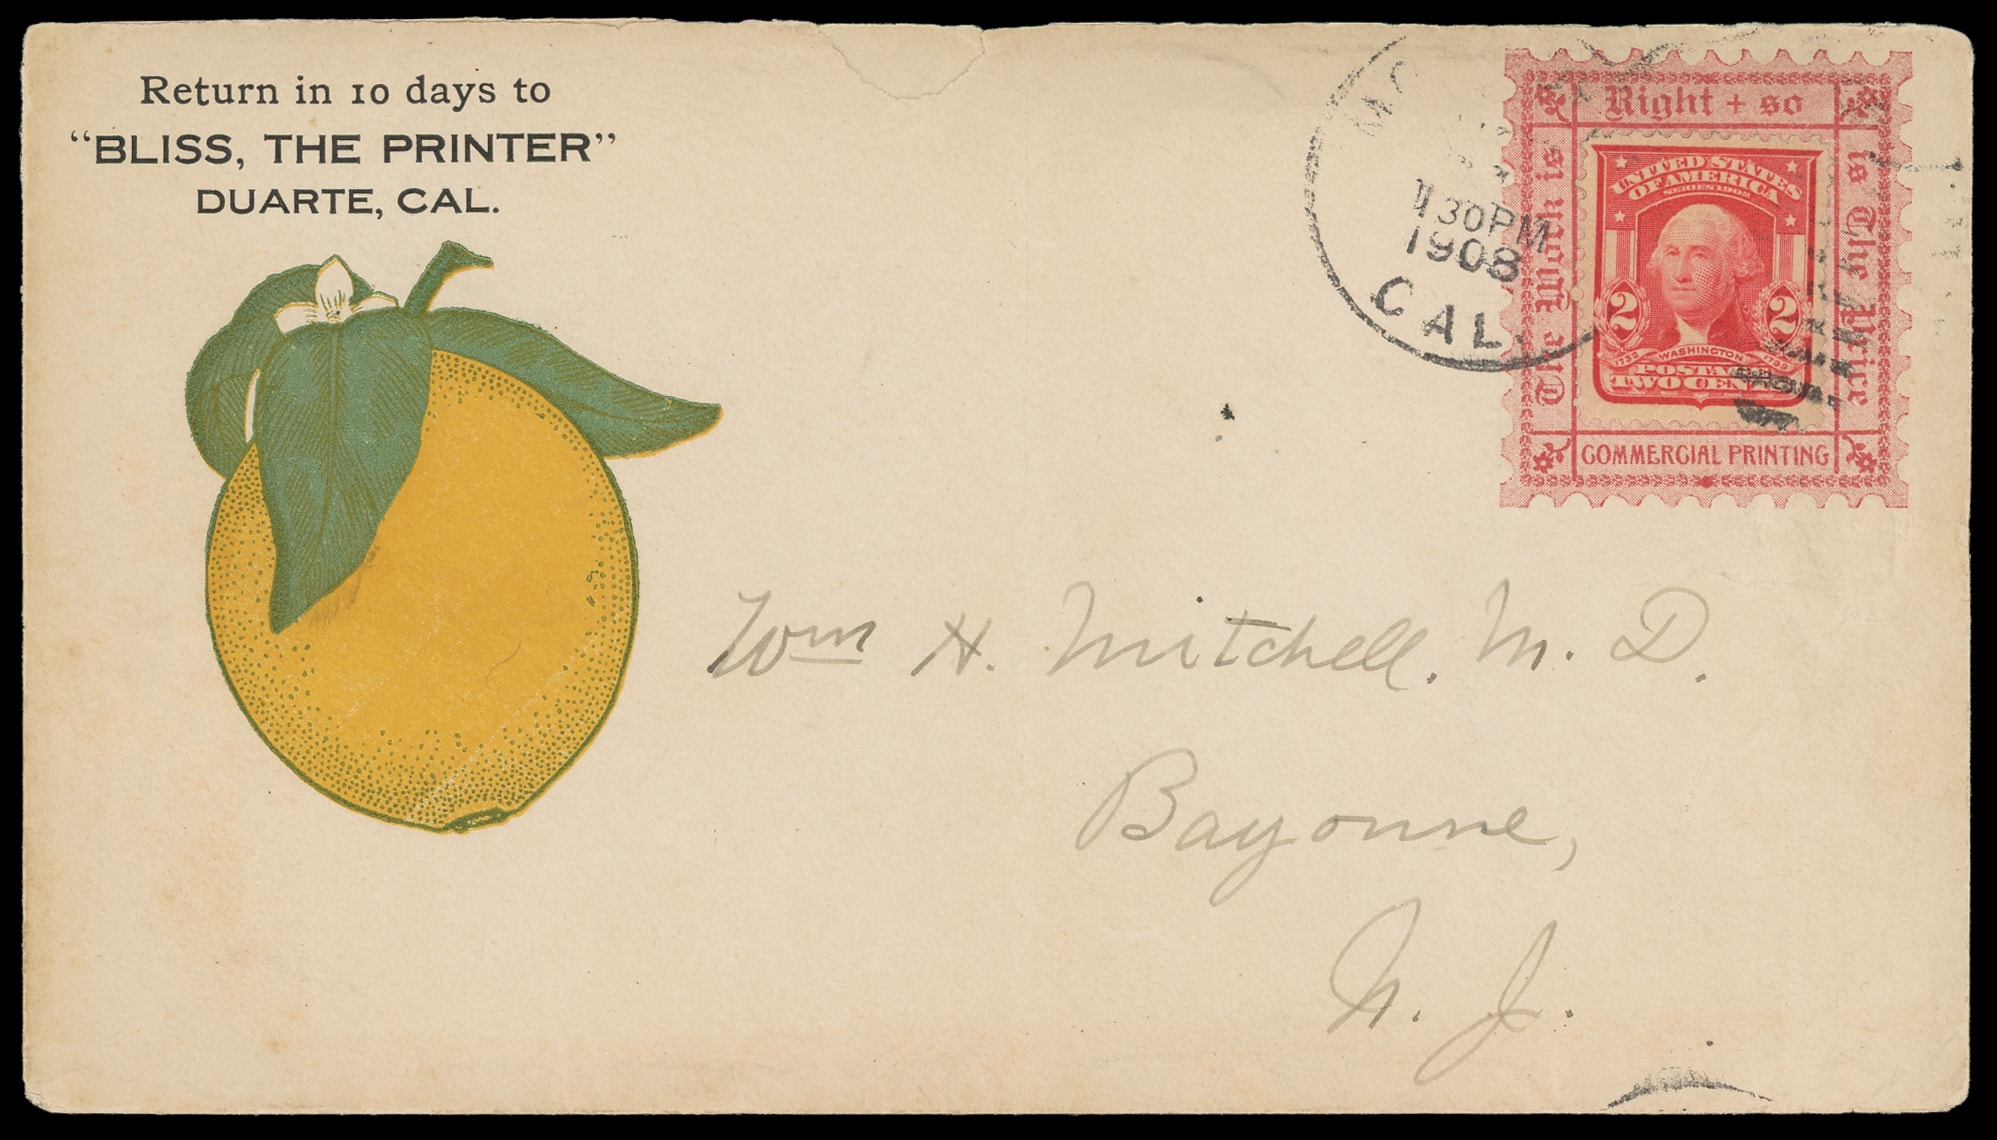 Return in 10 days to
“BLISS, THE PRINTER”
DUARTE, CAL.
30 PM
1908
CAL.
The Work is
Right + so
is The Price
COMMERCIAL PRINTING
UNITED STATES
OF AMERICA
SERIES 1902
2 2
1732 WASHINGTON 1799
POSTAGE
TWO CENTS
Wm H. Mitchell. M. D.
Bayonne,
N. J.